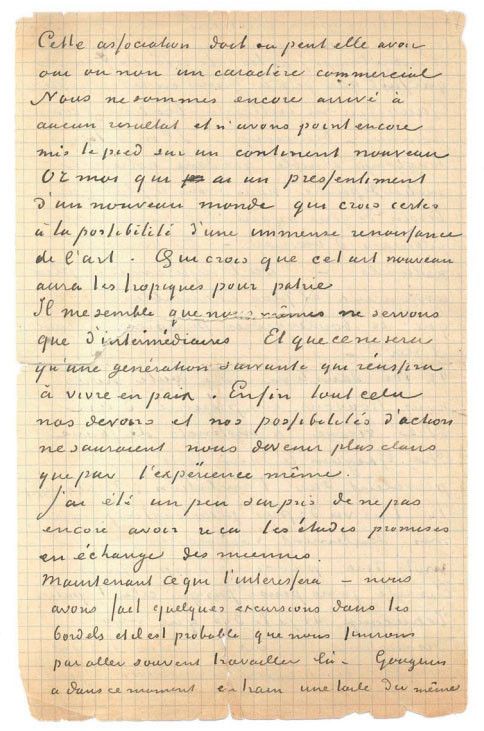 Cette association doit ou peut elle avoir
oui ou non un caractère commercial
Nous ne sommes encore arrivé à
aucun resultat et n'avons point encore
mis le pied sur un continent nouveau
Or moi qui ai un pressentiment
d'un nouveau monde qui crois certes
à la possibilité d'une immense renaissance
de l'art. Qui crois que cet art nouveau
aura les tropiques pour patrie
Il me semble que nous mêmes ne servons
que d'intermédiaires Et que ce ne sera
qu'une génération suivante qui réussira
à vivre en paix. Enfin tout cela
nos devoirs et nos possibilités d'action
ne sauraient nous devenir plus clairs
que par l'expérience même.
J'ai été un peu surpris de ne pas
encore avoir recu les études promises
en échange des miennes.
Maintenant ce qui t'interessera – nous
avons fait quelques excursions dans les
bordels et il est probable que nous finirons
par aller souvent travailler là – Gauguin
a dans ce moment en train une toile du même